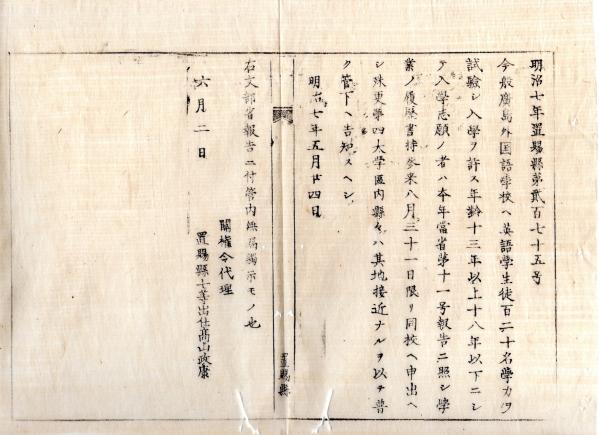 明治七年置賜縣第貳百七十五号
今般廣島外国語学校ヘ英語学生徒百二十名学力ヲ
試験シ入学ヲ許ス年齢十三年以上十八年以下ニシ
テ入学志願ノ者ハ本年當省第十一号報告ニ照シ学
業ノ履歴書持参来八月三十一日限リ同校ヘ申出ヘ
シ殊更第四大学区内縣々ハ其地接近ナルヲ以テ普
ク管下ヘ告知スヘシ
明治七年五月廿四日
右文部省報告ニ付管内無漏觸示モノ也
關権令代理
六月二日
置賜縣七等出仕髙山政康
置賜縣